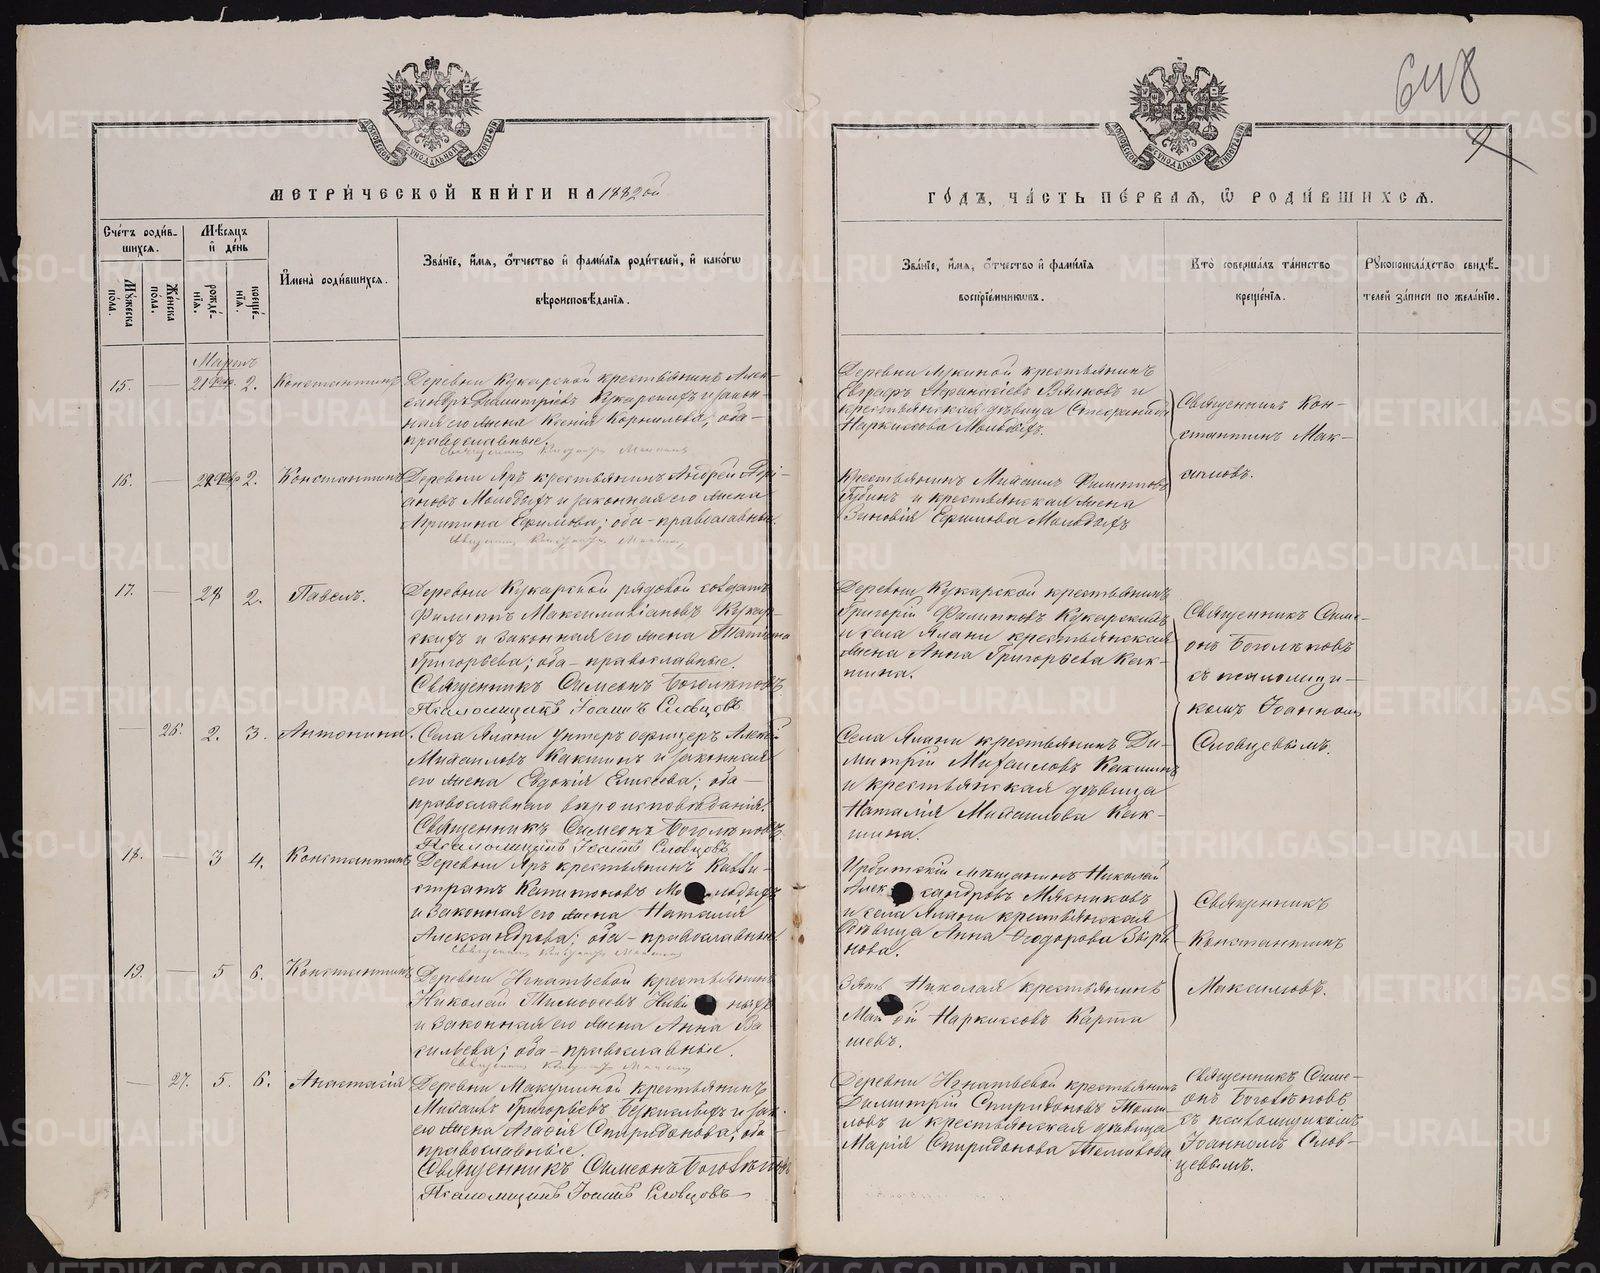 648
МЕТРИ́ЧЕСКОЙ КНИ́ГИ НА 1882ой
ГО́ДЪ, ЧА́СТЬ ПЕ́РВАЯ, Ѡ РОДИ́ВШИХСЯ.
Сче́тъ роди́в-
шихся.
Му́жеска по́ла.
Же́нска по́ла.
Мѣ́сяцъ
и де́нь
рожде́-
нія.
креще́-
нія.
Имена̀ роди́вшихся.
Зва́ніе, и́мя, о́тчество и фами́лія роди́телей, и како́гѡ
вѣроисповѣ́данія.
Зва́ніе, и́мя, о́тчество и фами́лія
воспріе́мникѡвъ.
Кто̀ соверша́лъ та́инство
креще́нія.
Рукоприкла́дство свидѣ́-
телей за́писи по жела́нію.
Мартъ
15. — 21 Февр. 2. Константинъ
Деревни Кукарской крестьянинъ Алек-
сандръ Димитріевъ Кукарскихъ и закон-
ная его жена Ксенія Корнилова; оба -
православные.
Деревни Лукиной крестьянинъ
Евграфъ Афанасіевъ Вялковъ и
крестьянская дѣвица Стефанида
Наркиссова Молодыхъ.
Священникъ Кон-
стантинъ Мак-
симовъ.
16. — 2. Константинъ
Деревни Яръ крестьянинъ Андрей
ановъ Молодыхъ и законная его жена
Агрипина Ефимова; оба - православные.
Крестьянинъ Михаилъ Филиповъ
и крестьянская жена
Зиновія Ефимова Молодыхъ
17. — 28 2. Павелъ.
Деревни Кукарской рядовой солдатъ
Филиппъ Максимиліановъ Кукар-
скихъ и законная его жена Татіана
Григорьева; оба - православные.
Священникъ Симеонъ Боголюбовъ
Псаломщикъ Іоаннъ Словцовъ
Деревни Кукарской крестьянинъ
Григорій Филиповъ Кукарскихъ
и села Ялани крестьянская
жена Анна Григорьева Как-
шина.
Священникъ Симе-
онъ Боголюбовъ
съ псаломщи-
комъ Іоанномъ
Словцевымъ.
— 26. 2. 3. Антонина.
Села Ялани унтеръ офицеръ
Михаиловъ Какшинъ и законная
его жена Евдокія Елисеева; оба -
православнаго вѣроисповѣданія
Священникъ Симеонъ Боголюбовъ
Псаломщикъ Іоаннъ Словцовъ
Села Ялани крестьянинъ Ди-
митрій Михаиловъ Какшинъ
и крестьянская дѣвица
Наталія Михаилова Как-
шина.
18. — 3 4. Константинъ
Деревни Яръ крестьянинъ Калли-
стратъ Капитоновъ Молодыхъ
и законная его жена Наталія
Александрова; оба - православные
Ирбитскій мѣщанинъ Николай
Александровъ Мясниковъ
и села Ялани крестьянская
дѣвица Анна Ѳеодорова Звѣри-
нова.
Священникъ
Константинъ
Максимовъ.
19. — 5 6. Константинъ
Деревни Игнатьевой крестьянинъ
Николай Тимоѳеевъ
и законная его жена Анна Ва-
сильева; оба - православные.
Зять Николая крестьянинъ
Наркиссовъ Карта
шевъ.
— 27. 5. 6. Анастасія
Деревни Макушиной крестьянинъ
Михаилъ Григорьевъ и зак.
его жена Агафія Спиридонова; оба
православные.
Священникъ Симеонъ Боголюбовъ
Псаломщикъ Іоаннъ Словцовъ
Деревни Игнатьевой крестьянинъ
Димитрій Спиридоновъ Толма-
ловъ и крестьянская дѣвица
Марія Спиридонова
Священникъ Симе-
онъ Боголюбовъ
съ псаломщикомъ
Іоанномъ Слов-
цевымъ.
METRIKI.GASO-URAL.RU